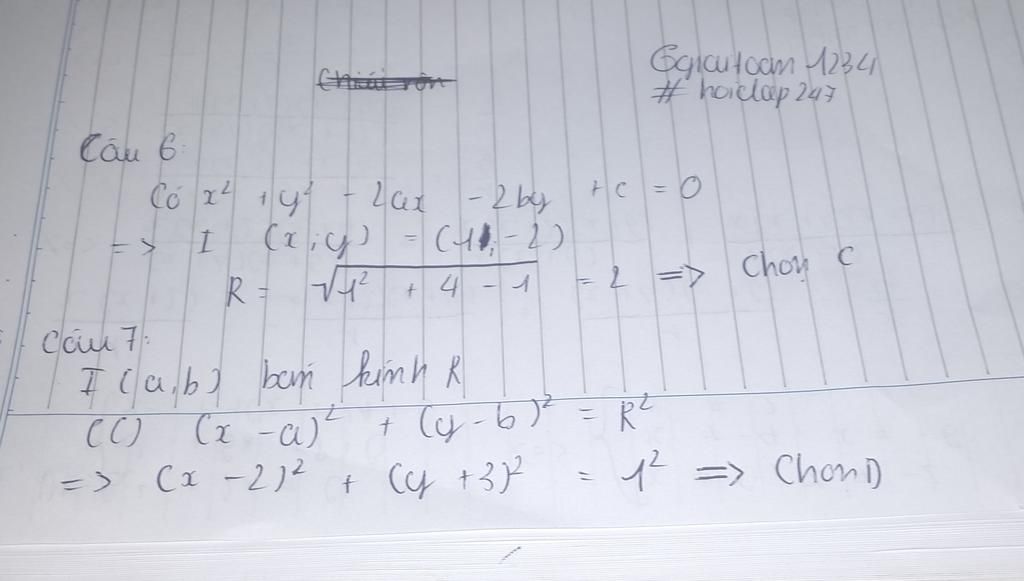 Ggiautoan 1234
# hoidap247
Câu 6:
Có x² + y² - 2ax - 2by + c = 0
=> I (x;y) = (1; -2)
R = √1² + 4 - 1 = 2 => Chọn C
Câu 7:
I (a,b) bán kính R
(C) (x - a)² + (y - b)² = R²
=> (x - 2)² + (y + 3)² = 1² => Chọn D